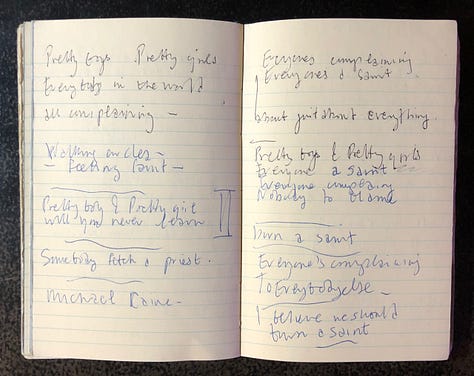 Pretty boys Pretty girls
Everybody in the world
all complaining -
Walking circles -
- Feeling faint -
Pretty boy & Pretty girl
will you never learn
Somebody fetch a priest.
Michael Caine -
Everyones complaining
Everyones a saint
about just about everything.
Pretty boys & Pretty girls
Everyone a saint
Everyone complaining
Nobody to blame
burn a saint
Everyone's complaining
To Everybody else
I believe we should
burn a saint